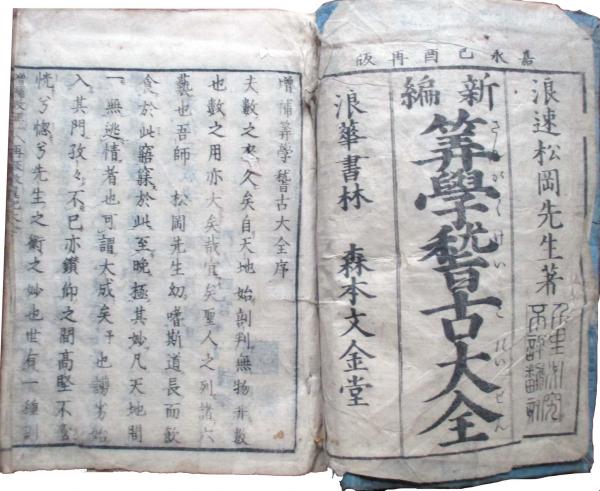 嘉永己酉再版
浪速松岡先生著
千里必究
不許翻刻
新編
筭學稽古大全
さんがくけいこ
浪華書林 森本文金堂
增補筭學稽古大全序
夫數之來久矣自天地始剖判無物非數
也數之用亦大矣哉宜矣聖人之列諸六
藝也吾師 松岡先生幼嗜斯道長而飲
食於此寤寐於此至晚極其妙凡天地間
一無逃情者也可謂大成矣予也謭劣始
入其門孜々不已亦鑽仰之間高堅不
恍兮惚兮先生之術之妙也世有一種